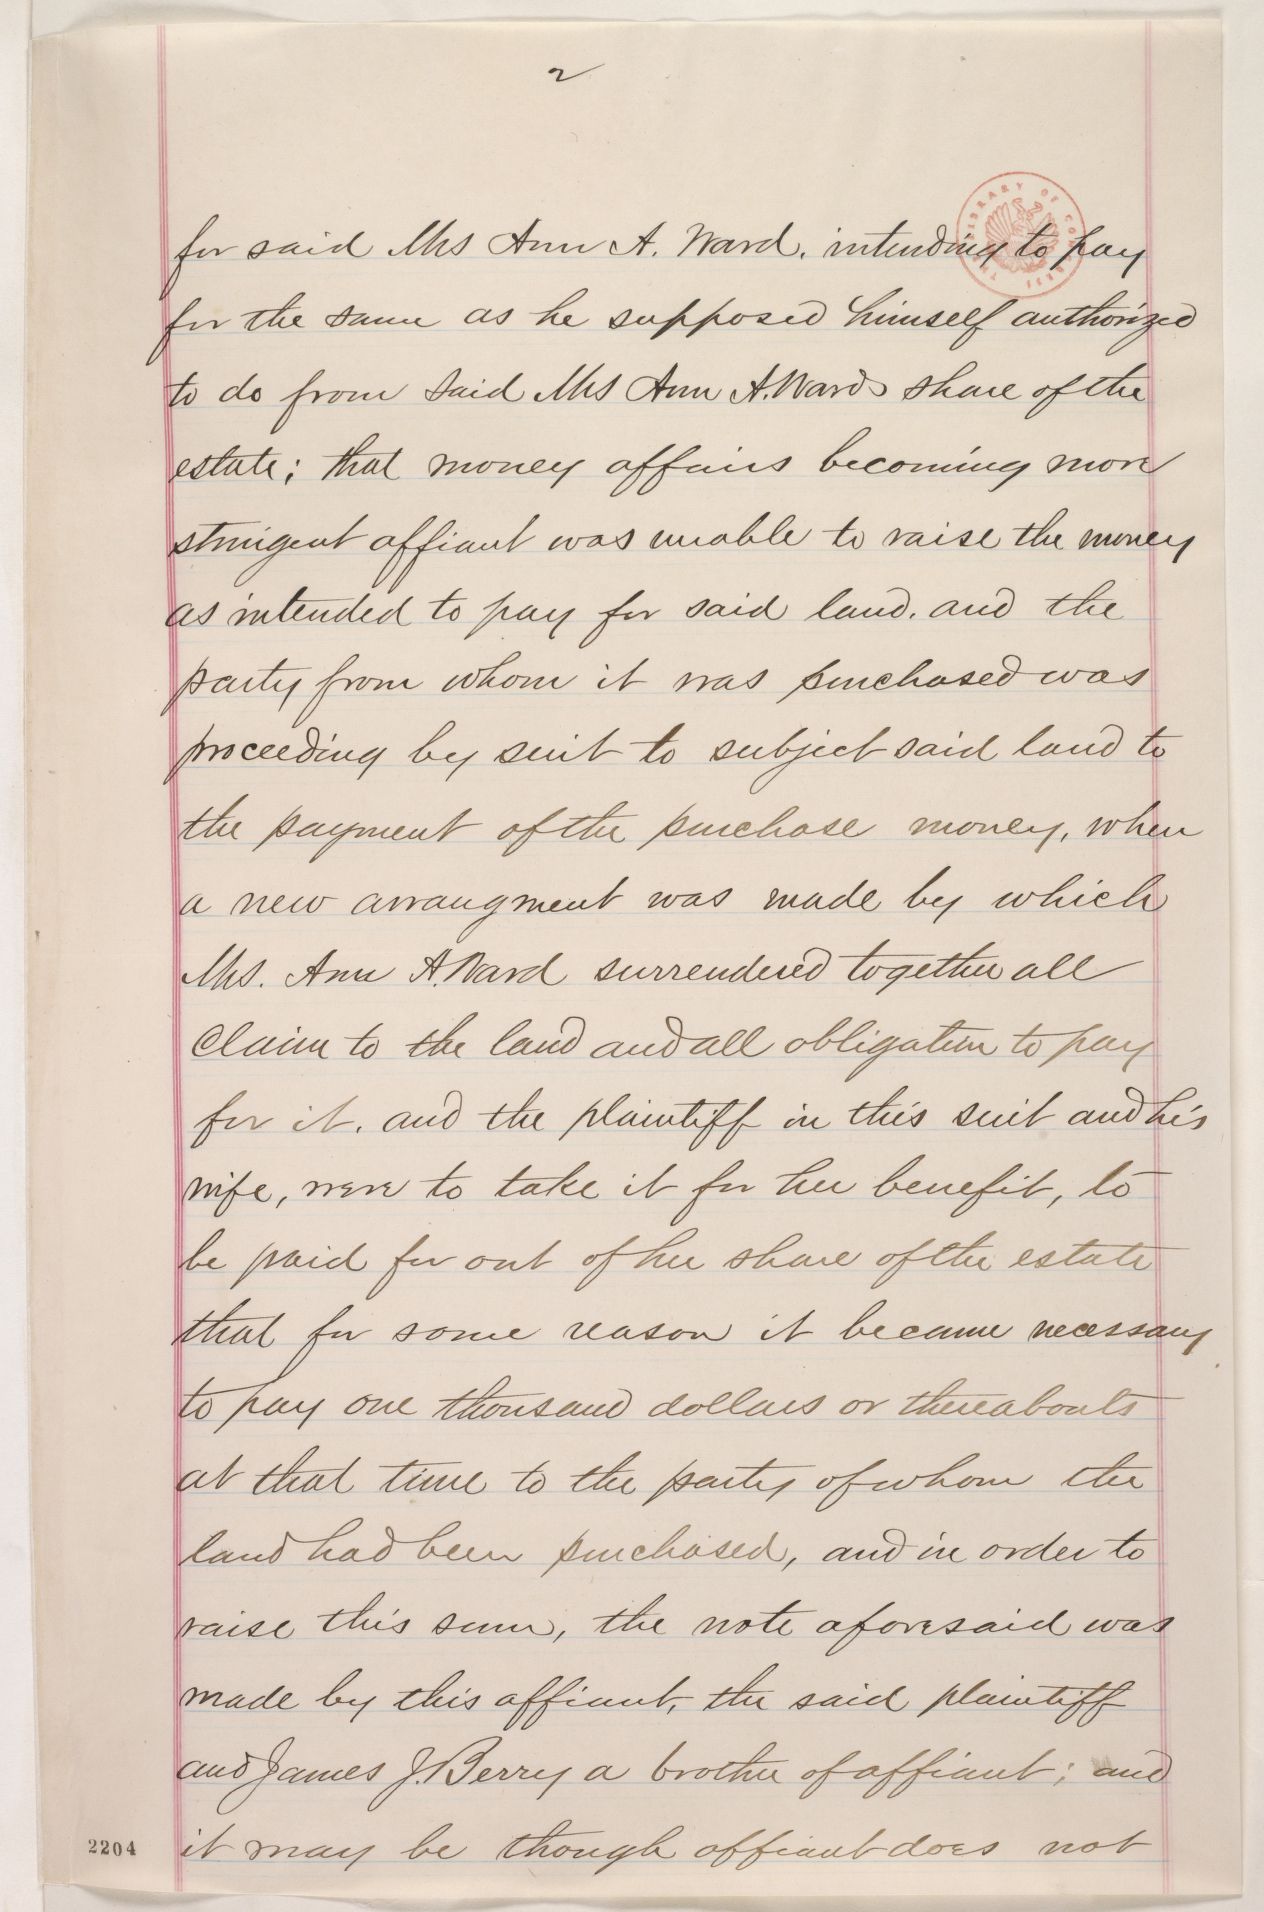 2
for said Mrs Ann A. Ward. intending to pay
for the same as he supposed himself authorized
to do from said Mrs Ann A. Wards share of the
estate; that money affairs becoming more
stringent affiant was unable to raise the money
as intended to pay for said land. and the
party from whom it was purchased was
proceeding by suit to subject said land to
the payment of the purchase money, when
a new arrangment was made by which
Mrs. Ann A. Ward surrendered together all
claim to the land and all obligation to pay
for it. and the plaintiff in this suit and his
wife, were to take it for her benefit, to
be paid for out of her share of the estate
that for some reason it became necessary
to pay one thousand dollars or thereabouts
at that time to the party of whom the
land had been purchased, and in order to
raise this sum, the note aforesaid was
made by this affiant, the said plaintiff
and James J. Berry a brother of affiant; and
it may be though affiant does not
2204
THE LIBRARY OF CONGRESS